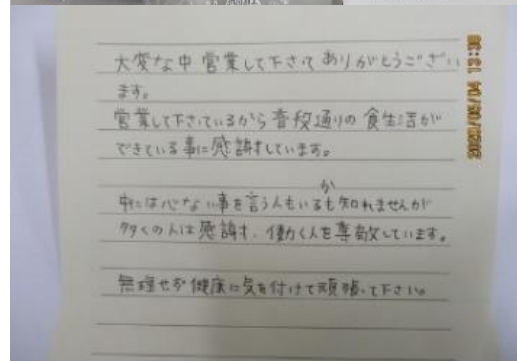 大変な中営業して下さてありがとうござい
ます。
営業して下さているから普段通りの食生活が
できている事に感謝しています。
か
中には心ない事を言う人もいるも知れませんが
多くの人は感謝す、働く人を尊敬しています。
無理せず健康に気を付けて頑張って下さい。